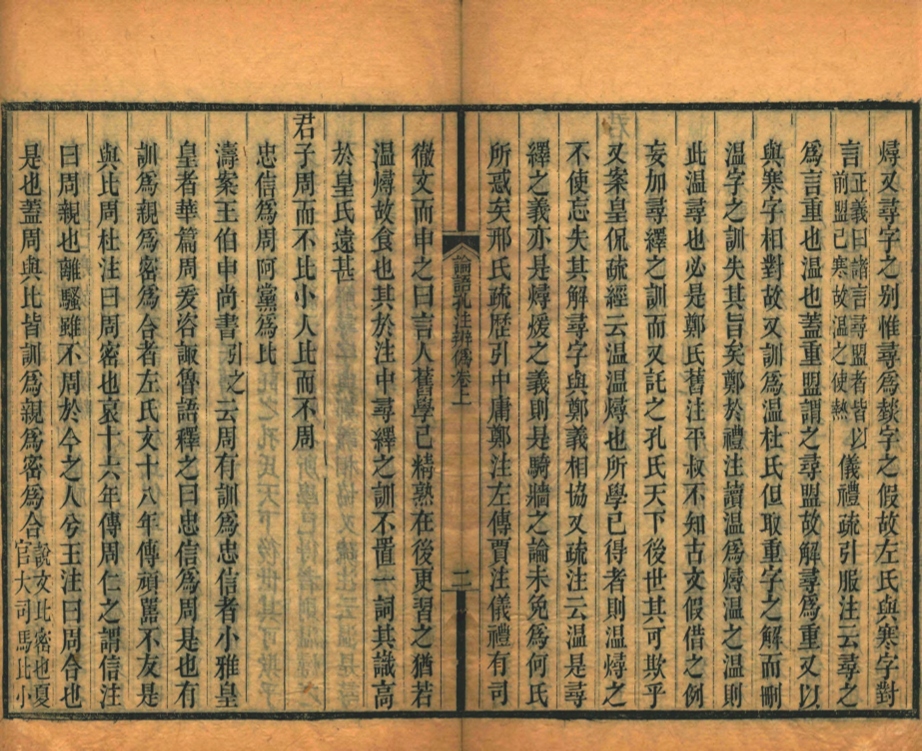 燖又尋字之别惟尋為燅字之假故左氏與寒字對
言正義曰諸言尋盟者皆以前盟已寒故温之使熱儀禮疏引服注云尋之
為言重也温也蓋重盟謂之尋盟故解尋為重又以
與寒字相對故又訓為温杜氏但取重字之解而刪
温字之訓失其旨矣鄭於禮注讀温為燖温之温則
此温尋也必是鄭氏舊注平叔不知古文假借之例
妄加尋繹之訓而又託之孔氏天下後世其可欺乎
又案皇侃疏經云温温燖也所學已得者則温燖之
不使忘失其解尋字與鄭義相協又疏注云温是尋
繹之義亦是燖煖之義則是騎牆之論未免為何氏
所惑矣邢氏疏歷引中庸鄭注左傳賈注儀禮有司
論語孔注辨偽卷上
二
徹文而申之曰言人舊學已精熟在後更習之猶若
温燖故食也其於注中尋繹之訓不置一詞其識高
於皇氏遠甚
君子周而不比小人比而不周
忠信為周阿黨為比
濤案王伯申尚書引之云周有訓為忠信者小雅皇
皇者華篇周爰咨諏魯語釋之曰忠信為周是也有
訓為親為密為合者左氏文十八年傳頑嚚不友是
與比周杜注曰周密也哀十六年傳周仁之謂信注
曰周親也離騷雖不周於今之人兮王注曰周合也
是也蓋周與比皆訓為親為密為合說文比密也夏官大司馬比小